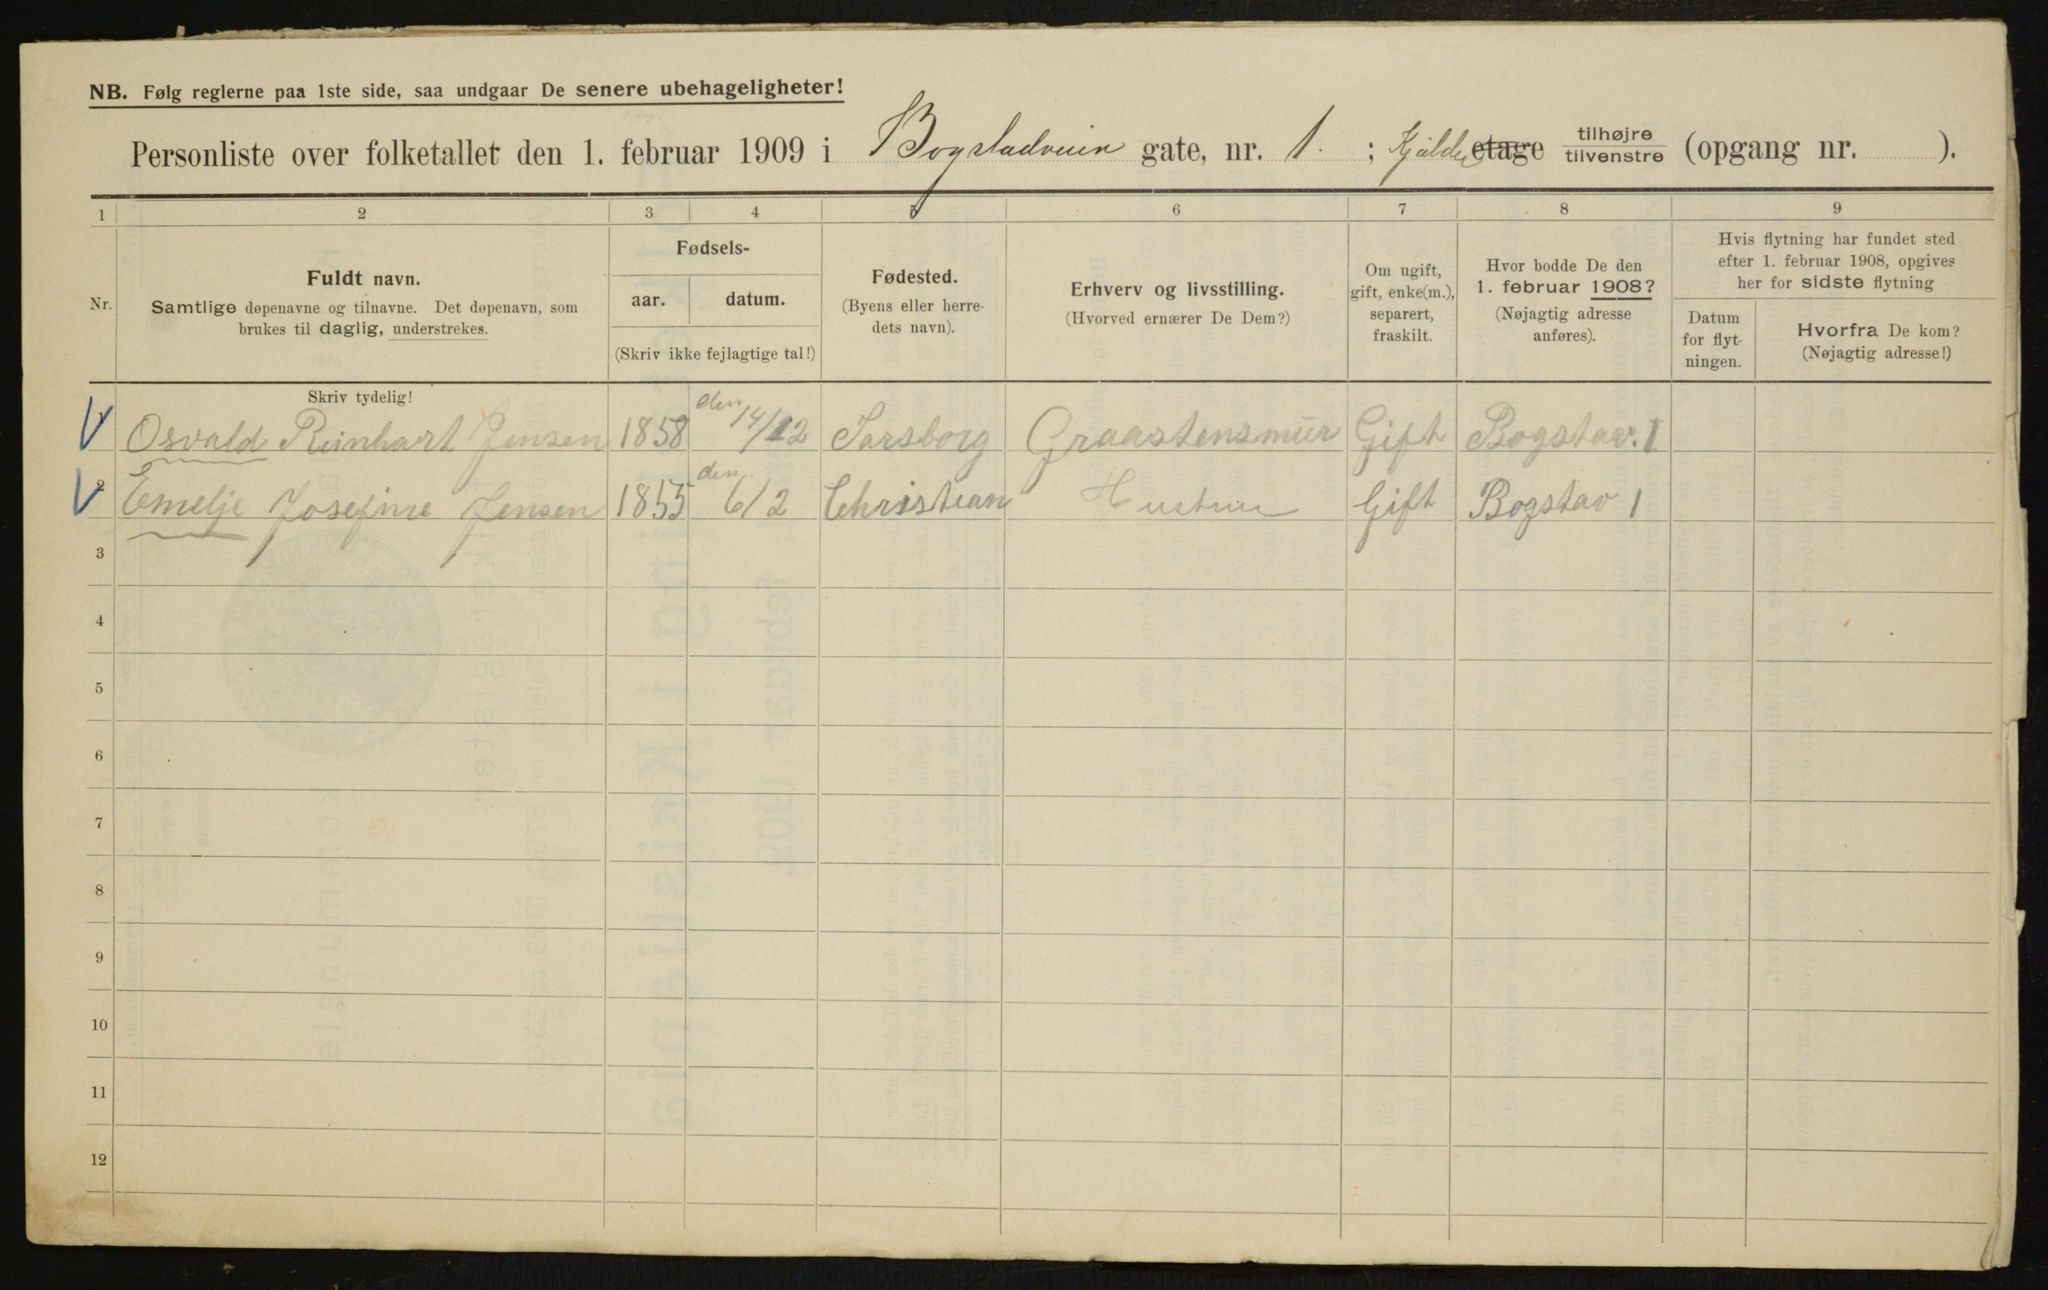 NB. Følg reglerne paa 1ste side, saa undgaar De senere ubehageligheter!
Personliste over folketallet den 1. februar 1909 i Bogstadveien gate, nr. 1. ; Kjælder etage tilhøjre tilvenstre (opgang nr. ).
1 2 3 4 5 6 7 8 9
Nr.
Fuldt navn.
Samtlige døpenavne og tilnavne. Det døpenavn, som
brukes til daglig, understrekes.
Fødsels-
aar. datum.
(Skriv ikke fejlagtige tal!)
Fødested.
(Byens eller herre-
dets navn).
Erhverv og livsstilling.
(Hvorved ernærer De Dem?)
Om ugift,
gift, enke(m.),
separert,
fraskilt.
Hvor bodde De den
1. februar 1908?
(Nøjagtig adresse
anføres).
Hvis flytning har fundet sted
efter 1. februar 1908, opgives
her for sidste flytning
Datum
for flyt-
ningen.
Hvorfra De kom?
(Nøjagtig adresse!)
Skriv tydelig!
1 Osvald Reinhart Jensen 1858 den 14/12 Sarsborg Graastensmür Gift Bogstav. 1
2 Emelje Josefine Jensen 1855 den 6/2 Christian Hustrue Gift Bogstav 1
3
4
5
6
7
8
9
10
11
12